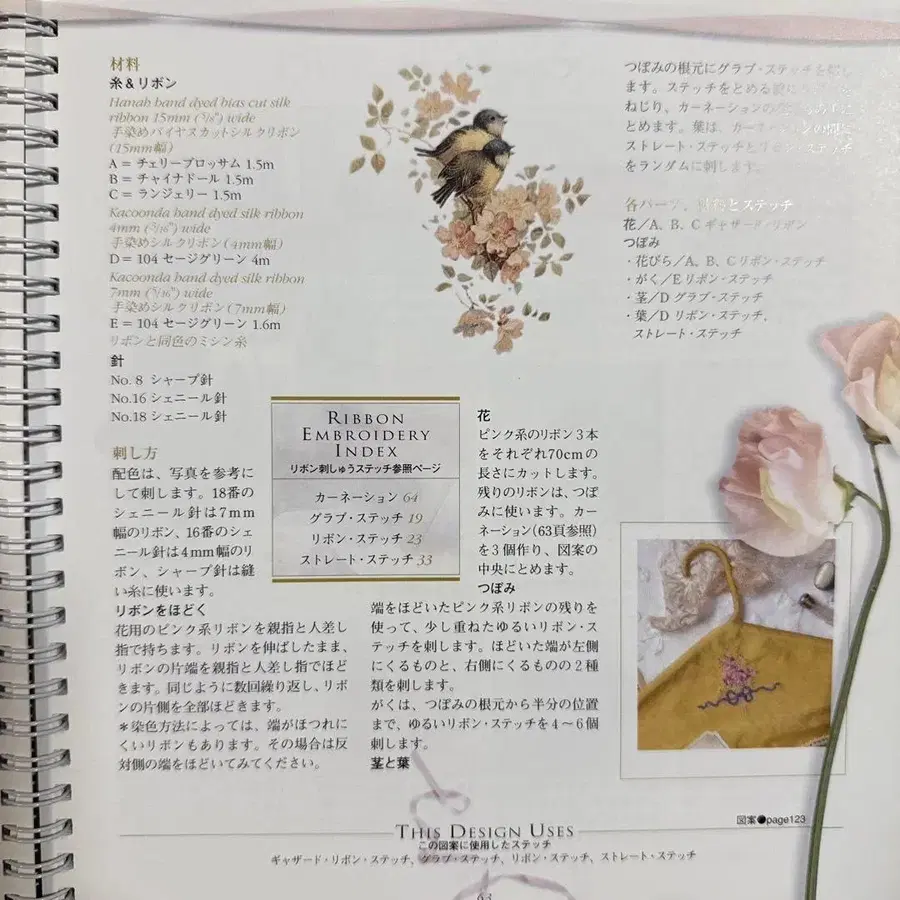 材料
糸＆リボン
Hanah hand dyed bias cut silk
ribbon 15mm (5/8") wide
手染めバイヤスカットシルクリボン
(15mm幅)
A = チェリーブロッサム 1.5m
B = チャイナドール 1.5m
C = ランジェリー 1.5m
Kacoonda hand dyed silk ribbon
4mm wide
手染めシルクリボン(4mm幅)
D = 104 セージグリーン 4m
Kacoonda hand dyed silk ribbon
7mm (5/16") wide
手染めシルクリボン(7mm幅)
E = 104 セージグリーン 1.6m
リボンと同色のミシン糸
針
No. 8 シャープ針
No.16 シェニール針
No.18 シェニール針
刺し方
配色は、写真を参考に
して刺します。18番の
シェニール針は7mm
幅のリボン、16番のシェ
ニール針は4mm幅のリ
ボン、シャープ針は縫
い糸に使います。
リボンをほどく
花用のピンク系リボンを親指と人差し
指で持ちます。リボンを伸ばしたまま、
リボンの片端を親指と人差し指でほど
きます。同じように数回繰り返し、リボ
ンの片側を全部ほどきます。
＊染色方法によっては、端がほつれに
くいリボンもあります。その場合は反
対側の端をほどいてみてください。
RIBBON
EMBROIDERY
INDEX
リボン刺しゅうステッチ参照ページ
カーネーション 64
グラブ・ステッチ 19
リボン・ステッチ 23
ストレート・ステッチ 33
花
ピンク系のリボン3本
をそれぞれ70cmの
長さにカットします。
残りのリボンは、つぼ
みに使います。カー
ネーション(63頁参照)
を3個作り、図案の
中央にとめます。
つぼみ
端をほどいたピンク系リボンの残りを
使って、少し重ねたゆるいリボン・ス
テッチを刺します。ほどいた端が左側
にくるものと、右側にくるものの2種
類を刺します。
がくは、つぼみの根元から半分の位置
まで、ゆるいリボン・ステッチを4～6個
刺します。
茎と葉
つぼみの根元にグラブ・ステッチを刺し
ます。ステッチをとめる
ねじり、カーネーションの
とめます。葉は、カーネーションの間に
ストレート・ステッチとリボン・ステッチ
をランダムに刺します。
各パーツ、とステッチ
花／A、B、C ギャザード・リボン
つぼみ
・花びら／A、B、C リボン・ステッチ
・がく／E リボン・ステッチ
・茎／D グラブ・ステッチ
・葉／D リボン・ステッチ、
ストレート・ステッチ
図案●page123
THIS DESIGN USES
この図案に使用したステッチ
ギャザード・リボン・ステッチ、グラブ・ステッチ、リボン・ステッチ、ストレート・ステッチ
63